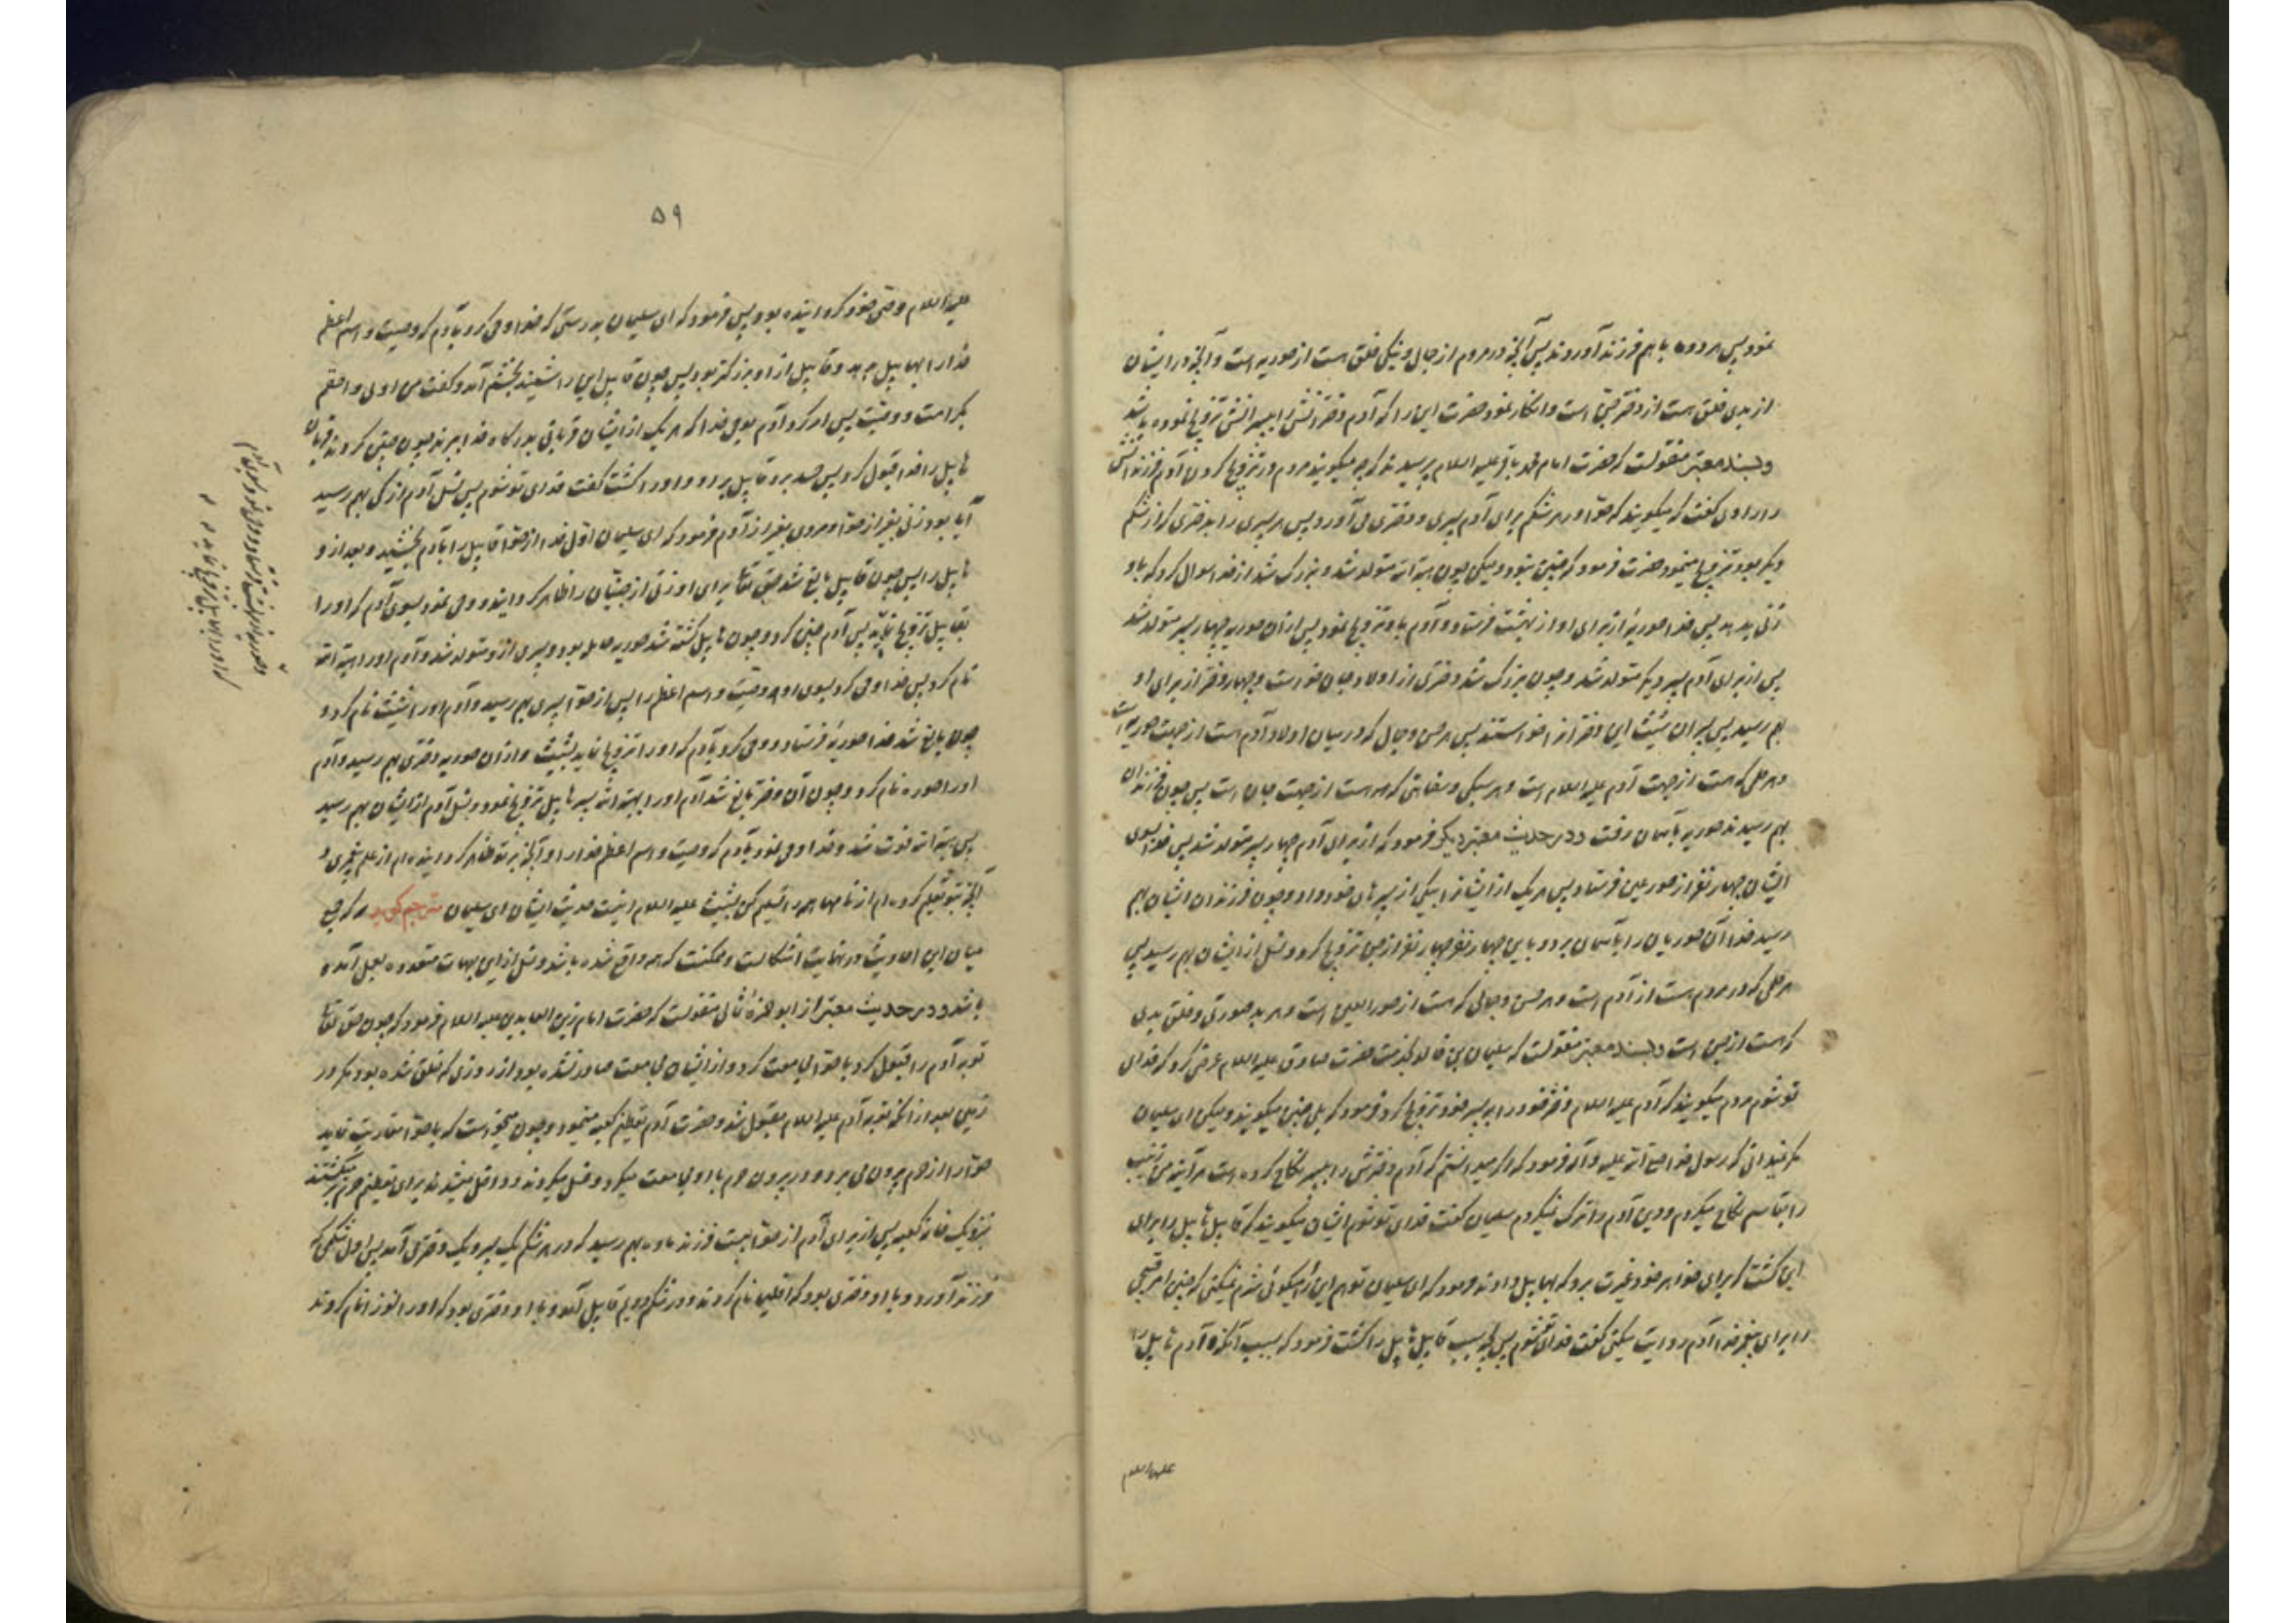 نمود پس هر دو با هم فرزند آوردند پس آنچه در مردم از جمال و نیکی خلق هست از حوریه است و آنچه در ایشان
از بدی خلق هست از دختر جنی است و انکار نمود حضرت این را که آدم دخترانش را بپسرانش تزویج نموده باشد
و بسند معتبر منقولست که حضرت امام محمد باقر علیه السلام پرسیدند که چه میگویند مردم در تزویج کردن آدم فرزندانش
را راوی گفت که میگویند که حوا در هر شکم برای آدم پسری و دختری می آورد پس هر پسری را بدختری که از شکم
دیگر بود تزویج مینمود حضرت فرمود که چنین نبود و لیکن چون هبة الله متولد شد و بزرگ شد از خدا سوال کرد که باو
زنی بدهد پس خدا حوریه از برای او از بهشت فرستاد و آدم باو تزویج نمود پس از آن حوریه چهار پسر متولد شد
پس از برای آدم پسر دیگر متولد شد و چون بزرگ شد دختری از اولاد جان خواست و چهار دختر از برای او
بهم رسید پس پسران شیث این دختران را خواستند پس هر حسن و جمال که در میان اولاد آدم است از جهت حوریه است
و هر حلمی که هست از جهت آدم علیه السلام است و هر سبکی و سفاهتی که هست از جهت جان است پس چون فرزندان
بهم رسیدند حوریه بآسمان رفت و در حدیث معتبر دیگر فرمود که از برای آدم چهار پسر متولد شد پس خدا بسوی
ایشان چهار نفر از حور عین فرستاد پس هر یک از ایشان را بیکی از پسرهای خود داد و چون فرزندان ایشان بهم
رسید خدا آن حوریان را بآسمان برد و باین چهار نفر چهار نفر از جن تزویج کرد و نسل از ایشان بهم رسید پس
هر حلمی که در مردم هست از آدم است و هر حسن و جمالی که هست از حور العین است و هر بد صورتی و خلق بدی
که هست از جن است و بسند معتبر منقولست که سلیمان بن خالد بخدمت حضرت صادق علیه السلام عرض کرد که فدای
تو شوم مردم میگویند که آدم علیه السلام دختر خود را به پسر خود تزویج کرد فرمود که بلی چنین میگویند ولیکن ای سلیمان
مگر نمیدانی که رسول خدا صلی الله علیه و آله فرمود که اگر میدانستم که آدم دخترش را بپسر نکاح کرده است هر آینه من زینب
را بقاسم نکاح میکردم و دین آدم را ترک نمیکردم سلیمان گفت فدای تو شوم ایشان میگویند که قابیل هابیل را برای
این کشت که برای خواهر خود غیرت برد که بهابیل دادند فرمود که ای سلیمان تو هم این را میگوئی شرم نمیکنی که چنین امر قبیحی
را برای پیغمبر خدا آدم روایت میکنی گفت فدای تو شوم پس بچه سبب قابیل هابیل را کشت فرمود که بسبب آنکه آدم هابیل را
علیه السلام
۵۹
علیه السلام وصی خود گردانیده بود پس فرمود که ای سلیمان بدرستی که خدا وحی کرد بآدم که وصیت و اسم اعظم
خدا را بهابیل بدهد و قابیل از او بزرگتر بود پس چون قابیل این را شنید بخشم آمد و گفت من اولی و احقم
بکرامت و وصیت پس امر کرد آدم بوحی خدا که هر یک از ایشان قربانی بدرگاه خدا ببرند چون چنین کردند قربان
هابیل را خدا قبول کرد پس حسد برد قابیل بر او و او را کشت گفت فدای تو شوم پس نسل آدم از کی بهم رسید
آیا بود زنی بغیر از حوا و مردی بغیر از آدم فرمود که ای سلیمان اول خدا از حوا قابیل را بآدم بخشید و بعد از او
هابیل را پس چون قابیل بالغ شد حق تعالی برای او زنی از جنیان را ظاهر گردانید و وحی نمود بسوی آدم که او را
بقابیل تزویج نماید پس آدم چنین کرد و چون هابیل کشته شد حوریه حامل بود و پسری از او متولد شد و آدم او را هبة الله
نام کرد پس خدا وحی کرد بسوی او که وصیت و اسم اعظم را پس از حوا پسری بهم رسید و آدم او را شیث نام کرد و
چون بالغ شد خدا حوریه فرستاد و وحی کرد بآدم که او را تزویج نماید بشیث و از آن حوریه دختری بهم رسید و آدم
او را حوره نام کرد و چون آن دختر بالغ شد آدم او را بهبة الله پسر هابیل تزویج نمود و نسل آدم از ایشان بهم رسید
پس هبة الله فوت شد و خدا وحی نمود بآدم که وصیت و اسم اعظم خدا را و آنچه بر تو ظاهر گردانیده ام از علم پیغمبری و
آنچه بتو تعلیم کرده ام از نامها همه را تسلیم کن بشیث علیه السلام اینست حدیث ایشان ای سلیمان مترجم گوید که جمع
میان این احادیث در نهایت اشکالست و ممکنست که همه واقع شده باشد و نسل از این جهات متعدده بعمل آمده
باشد و در حدیث معتبر از ابو حمزه ثمالی منقولست که حضرت امام زین العابدین علیه السلام فرمود که چون حق تعالی
توبه آدم را قبول کرد با حوا مجامعت کرد و از ایشان مجامعت صادر نشده بود از روزی که خلق شده بود مگر در
زمین بعد از آنکه توبه آدم علیه السلام مقبول شد و حضرت آدم تعظیم کعبه مینمود و چون میخواست که با حوا مقاربت نماید
حوا را از حرم بیرون می برد و در بیرون حرم با او مجامعت میکرد و غسل میکردند و داخل میشدند برای تعظیم حرم برمیگشتند
بنزدیک خانه کعبه پس از برای آدم از حوا بیست فرزند ماده بهم رسید که در هر شکم یک پسر و یک دختر می آمد پس اول شکمی که
فرزند آورد و با او دختری بود که اقلیما نام کردند و در شکم دویم قابیل آمد و با او دختری بود که او را لوزا نام کردند